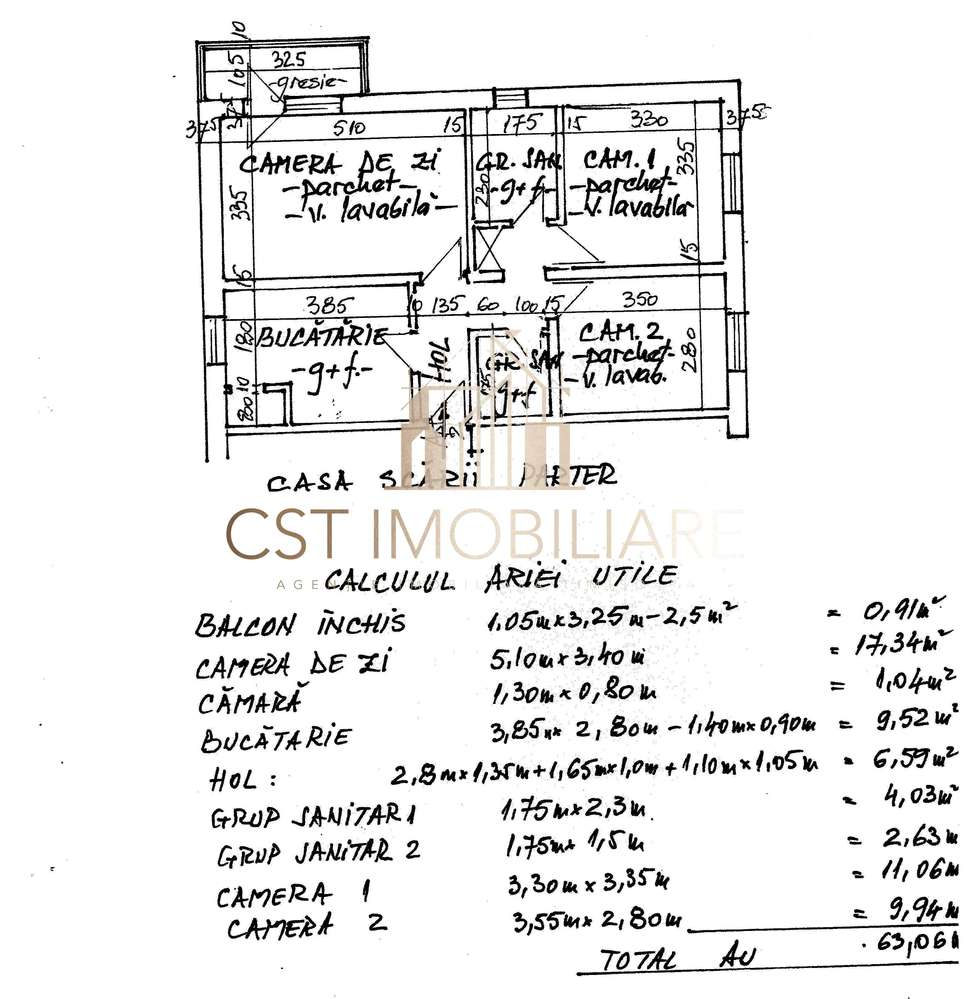 10
105
325
-gresie-
375
375
510
15
175
15
330
375
CAMERA DE ZI
-parchet-
-v. lavabilă-
335
GR. SAN
-g+f.-
230
CAM. 1
-parchet-
-v. lavabilă
335
15
15
385
10
135
60
100
15
350
BUCĂTĂRIE
-g+f.-
180
10
80
HOL
GR. SAN
g+f
175
CAM. 2
-parchet-
-v. lavab.
280
CASA SCĂRII PARTER
CST IMOBILIARE
CALCULUL ARIEI UTILE
BALCON ÎNCHIS 1,05m×3,25m-2,5m² = 0,91m²
CAMERA DE ZI 5,10m×3,40m = 17,34m²
CĂMARĂ 1,30m×0,80m = 1,04m²
BUCĂTARIE 3,85m×2,80m-1,40m×0,90m = 9,52m²
HOL: 2,8m×1,35m+1,65m×1,0m+1,10m×1,05m = 6,59m²
GRUP SANITAR 1 1,75m×2,3m = 4,03m²
GRUP SANITAR 2 1,75m× 1,5m = 2,63m
CAMERA 1 3,30m×3,35m = 11,06m
CAMERA 2 3,55m×2,80m = 9,94m
TOTAL AU 63,06